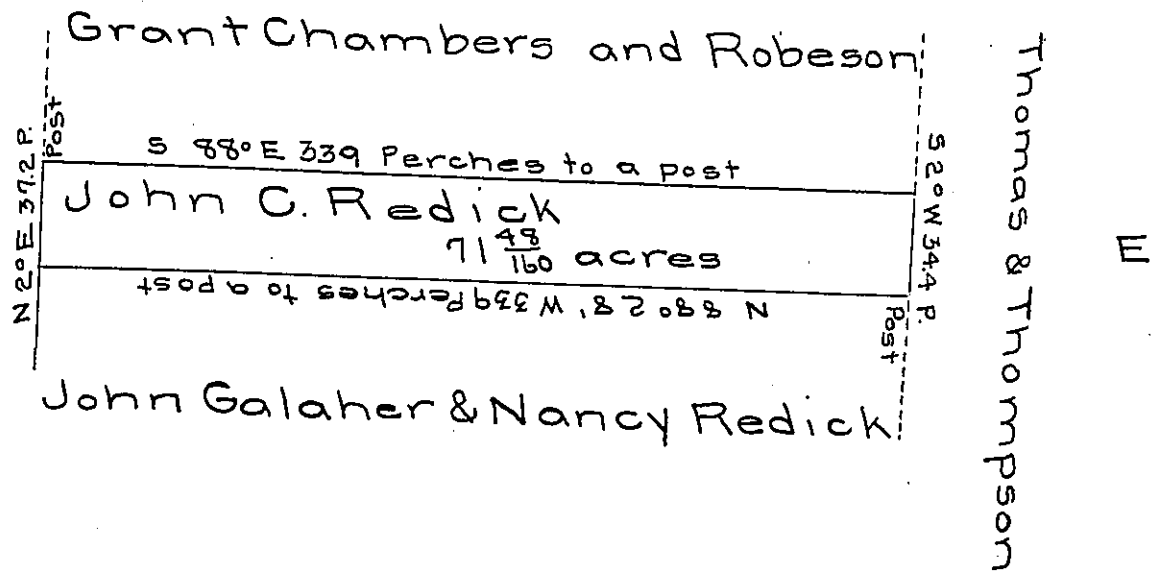 Grant Chambers and Robeson
Post
N 2° E 37.2 P.
S 88° E 339 Perches to a post
S 2° W 34.4 P.
John C. Redick
71 48/160 acres
N 88° 28' W 339 Perches to a post
Post
John Galaher & Nancy Redick
Thomas & Thompson
E